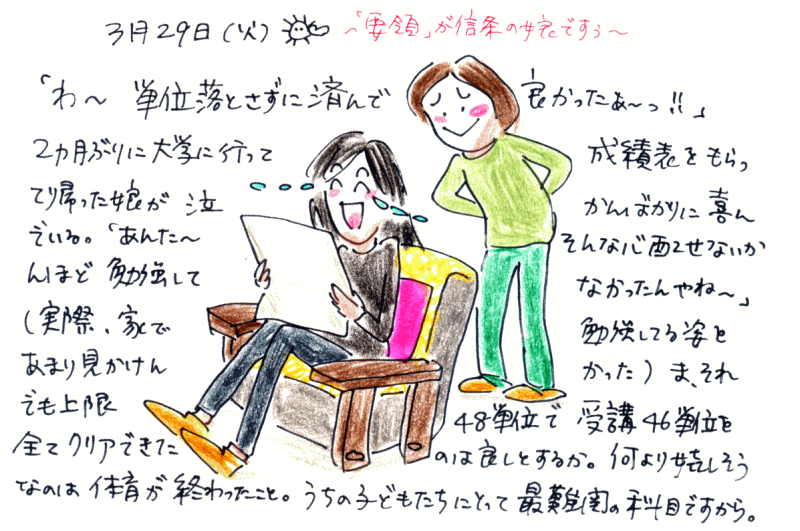 3月29日(火) ～「要領」が信条の娘ですぅ～
「わ～ 単位落とさずに済んで 良かったぁ～っ!!」
2カ月ぶりに大学に行って 成績表をもらっ
て帰った娘が 泣 かんばかりに喜ん
でいる。「あんた～ そんな心配せないか
んほど 勉強して なかったんやね～」
(実際、家で 勉強してる姿を
あまり見かけん かった) ま、それ
でも上限 48単位で 受講46単位を
全てクリアできた のは良しとするか。何より嬉しそう
なのは体育が終わったこと。うちの子どもたちにとって最難関の科目ですから。